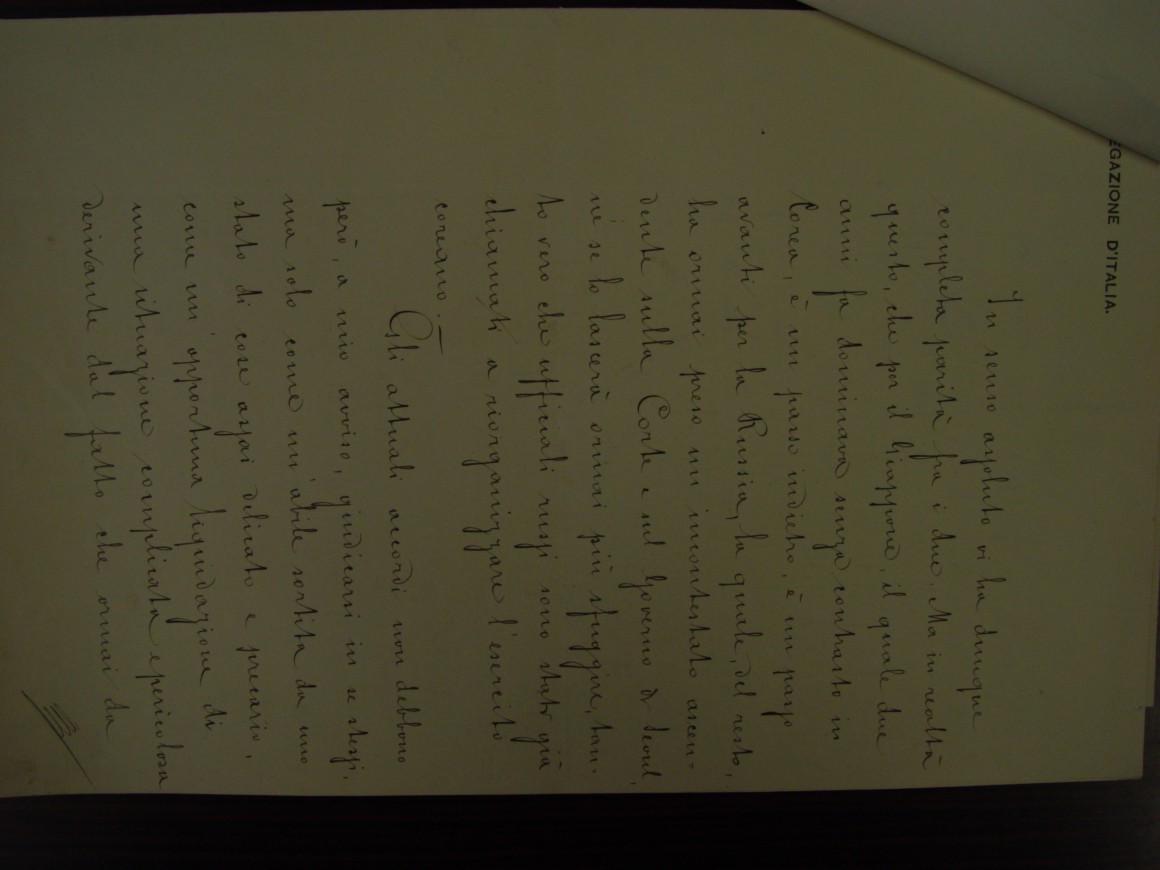 EGAZIONE D'ITALIA.
In senso assoluto vi ha dunque
completa parità fra i due. Ma in realtà
questo, che per il Giappone, il quale due
anni fa dominava senza contrasto in
Corea, è un passo indietro, è un passo
avanti per la Russia, la quale, del resto,
ha ormai preso un incontestato ascen-
dente sulla Corte e sul Governo di Seoul,
nè se lo lascerà ormai più sfuggire, tan-
to vero che ufficiali russi sono stati già
chiamati a riorganizzare l'esercito
coreano.—
Gli attuali accordi non debbono
però, a mio avviso, giudicarsi in se stessi,
ma solo come un'abile sortita da uno
stato di cose assai delicato e precario,
come un'opportuna liquidazione di
una situazione complicata e pericolosa
derivante dal fatto che ormai da